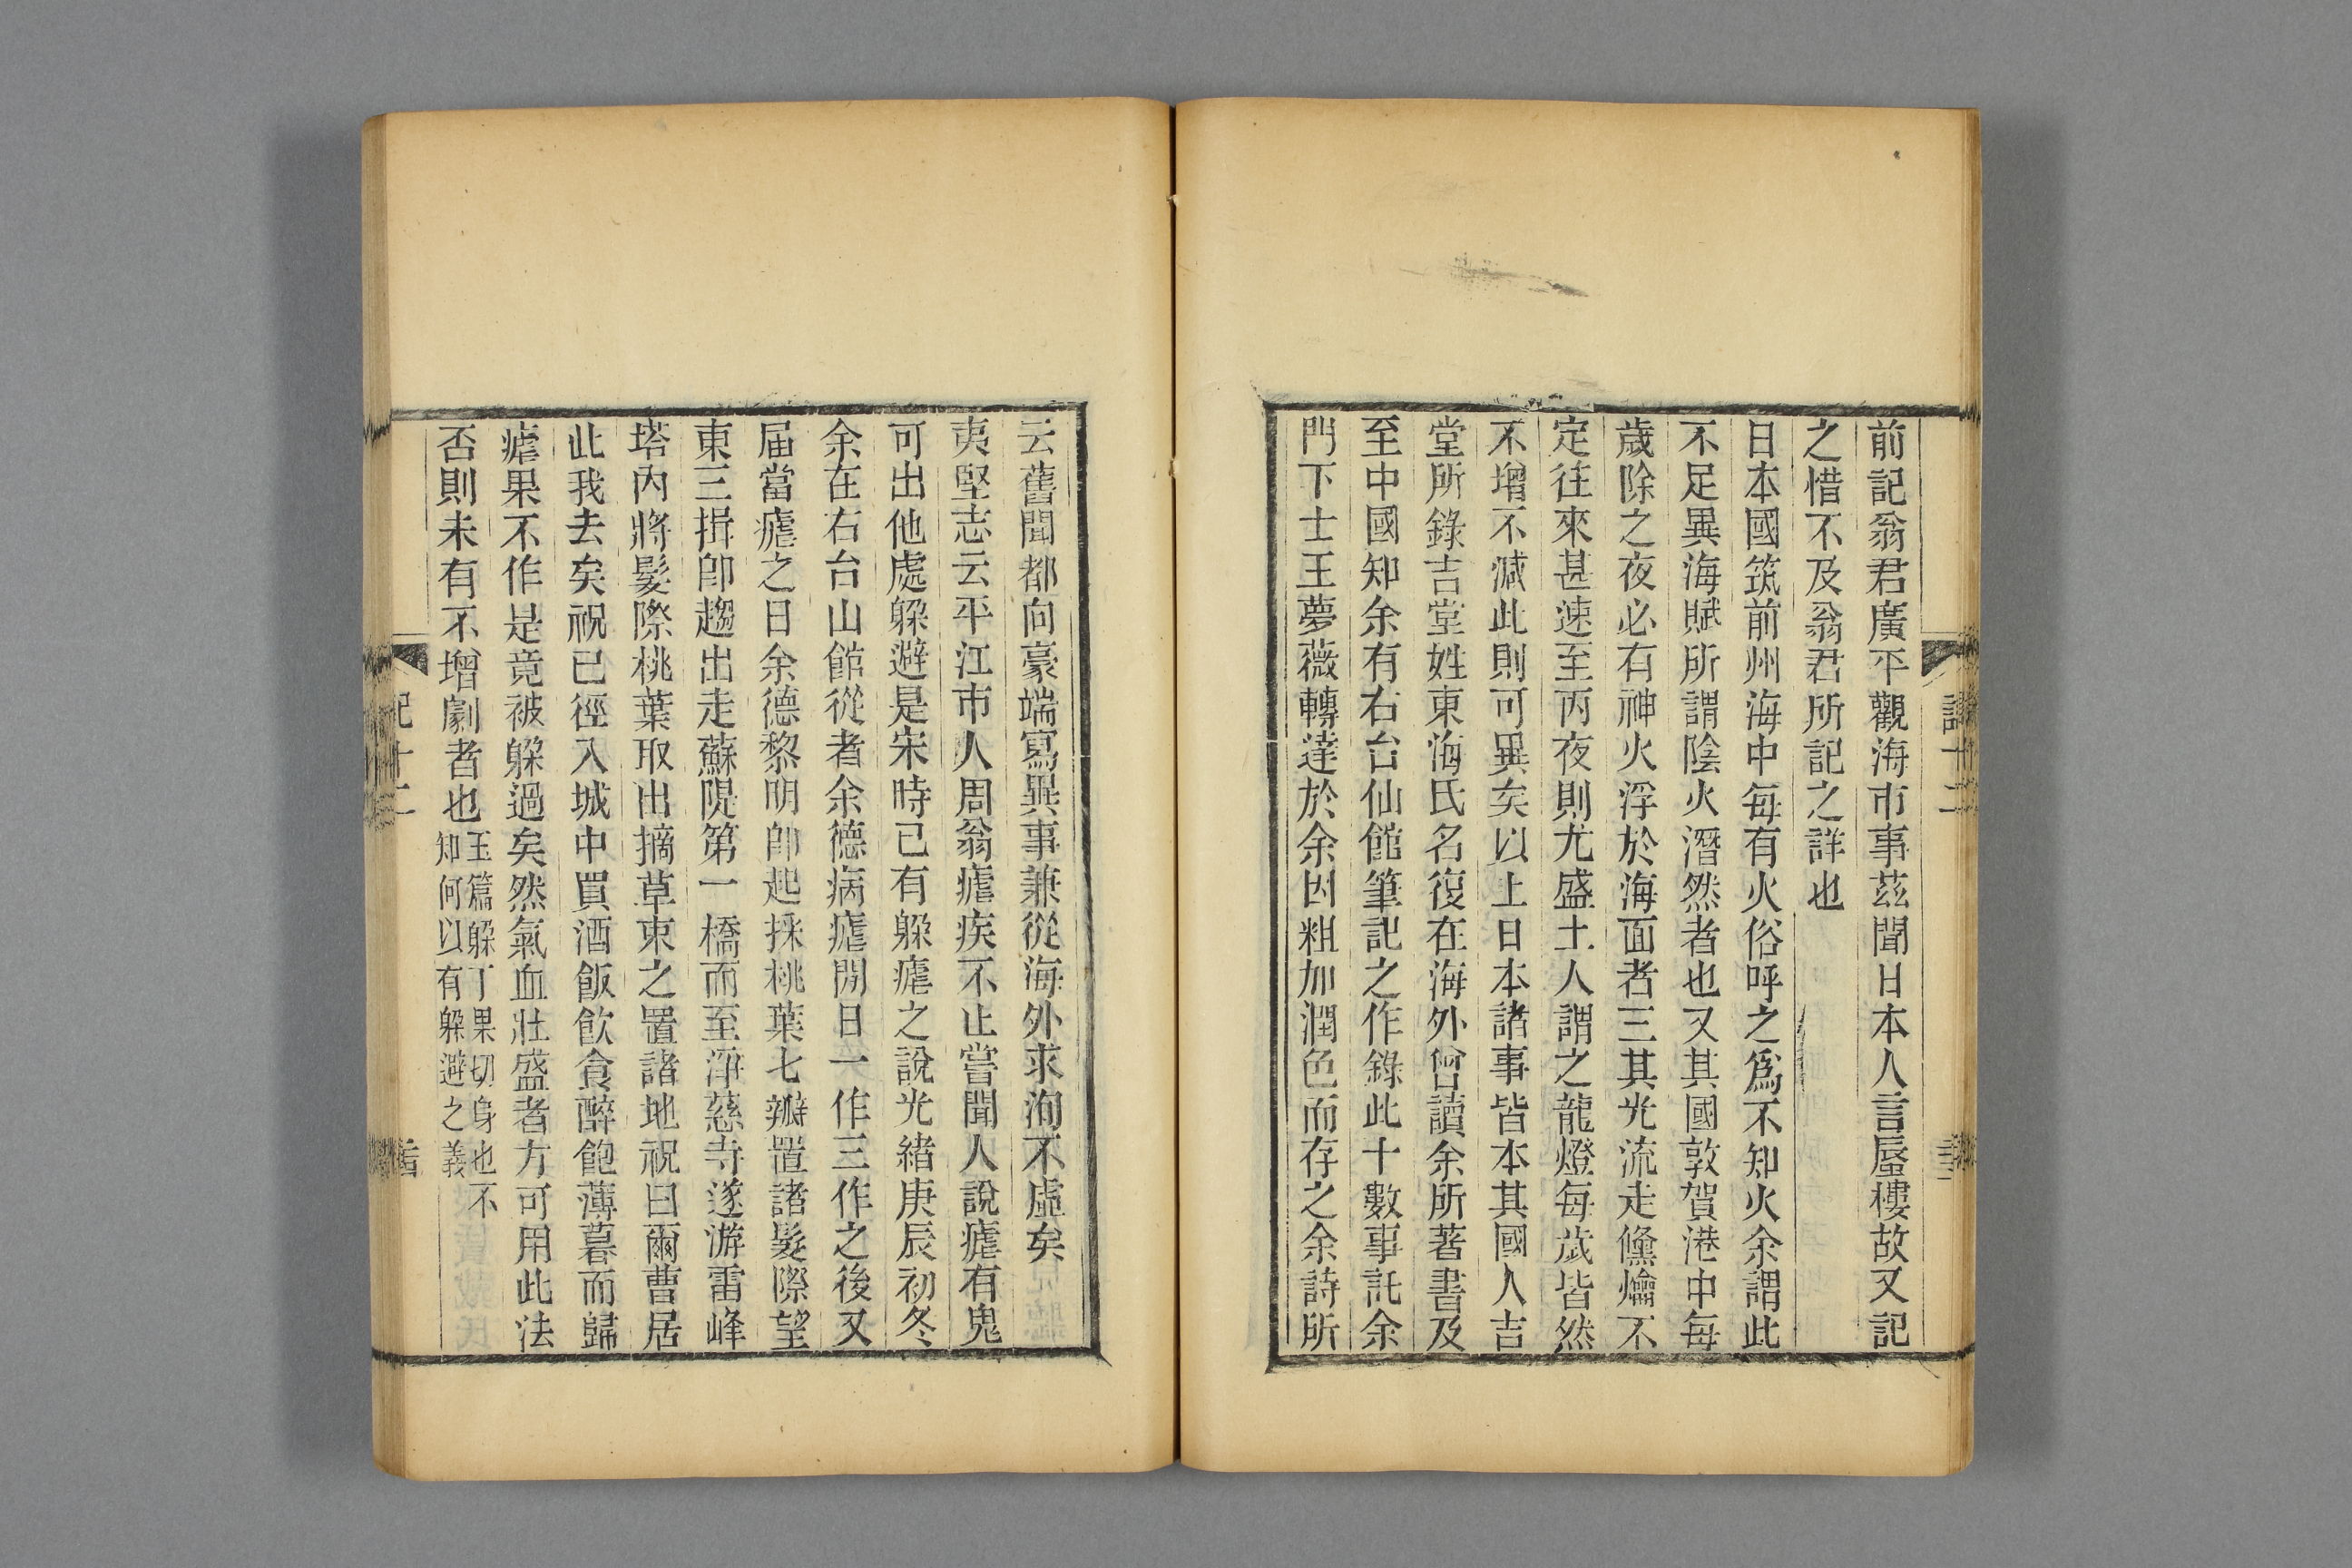 前記翁君廣平觀海市事茲聞日本人言蜃樓故又記
之惜不及翁君所記之詳也
日本國筑前州海中每有火俗呼之爲不知火余謂此
不足異海賦所謂陰火潛然者也又其國敦賀港中每
歲除之夜必有神火浮於海面者三其光流走儵爚不
定往來甚速至丙夜則尤盛土人謂之龍燈每歲皆然
不增不減此則可異矣以上日本諸事皆本其國人吉
堂所錄吉堂姓東海氏名復在海外曾讀余所著書及
至中國知余有右台仙館筆記之作錄此十數事託余
門下士王夢薇轉達於余因粗加潤色而存之余詩所
云舊聞都向豪端寫異事兼從海外求洵不虛矣
夷堅志云平江市人周翁瘧疾不止嘗聞人說瘧有鬼
可出他處躲避是宋時已有躲瘧之說光緒庚辰初冬
余在右台山館從者余德病瘧閒日一作三作之後又
屆當瘧之日余德黎明卽起採桃葉七瓣置諸髮際望
東三揖卽趨出走蘇隄第一橋而至淨慈寺遂游雷峰
塔內將髮際桃葉取出摘草束之置諸地祝曰爾曹居
此我去矣祝已徑入城中買酒飯飲食醉飽薄暮而歸
瘧果不作是竟被躲過矣然氣血壯盛者方可用此法
否則未有不增劇者也玉篇躲丁果切身也不
知何以有躲避之義
記十二